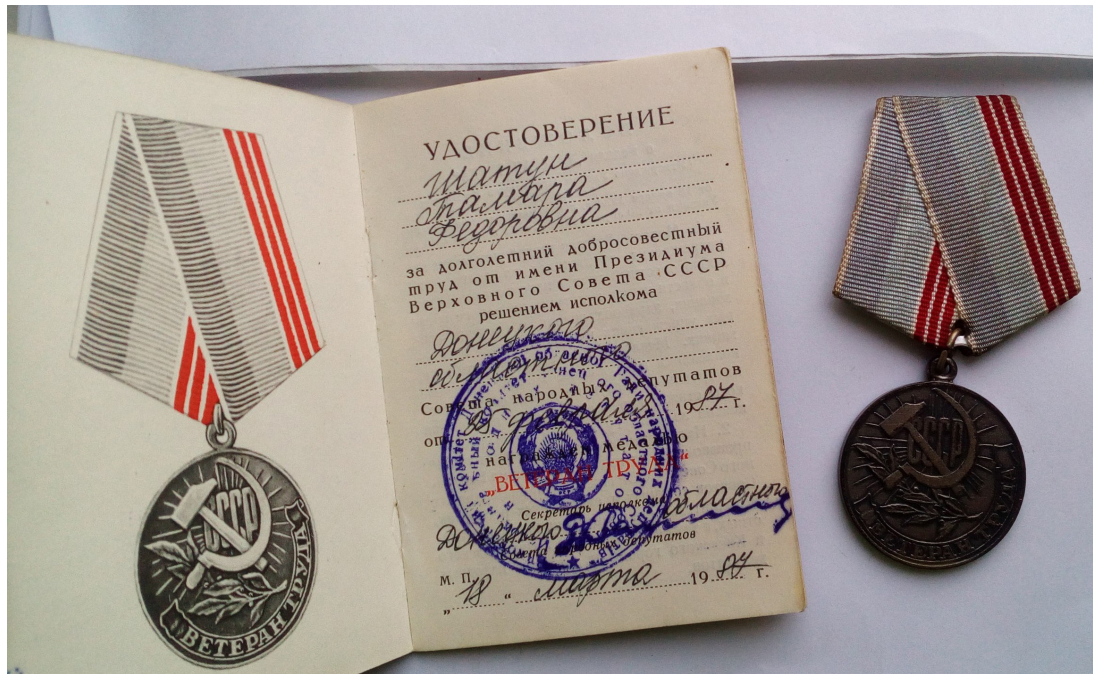 СССР
ВЕТЕРАН ТРУДА
УДОСТОВЕРЕНИЕ
Шатун
Тамара
Федоровна
за долголетний добросовестный
труд от имени Президиума
Верховного Совета СССР
решением исполкома
Донецкого
областного
Совета народных депутатов
от 25 февраля 1987 г.
награжден медалью
„ВЕТЕРАН ТРУДА“
Секретарь исполкома
Донецкого областного
Совета народных депутатов
М. П.
„18“ марта 1987 г.
СССР
ВЕТЕРАН ТРУДА